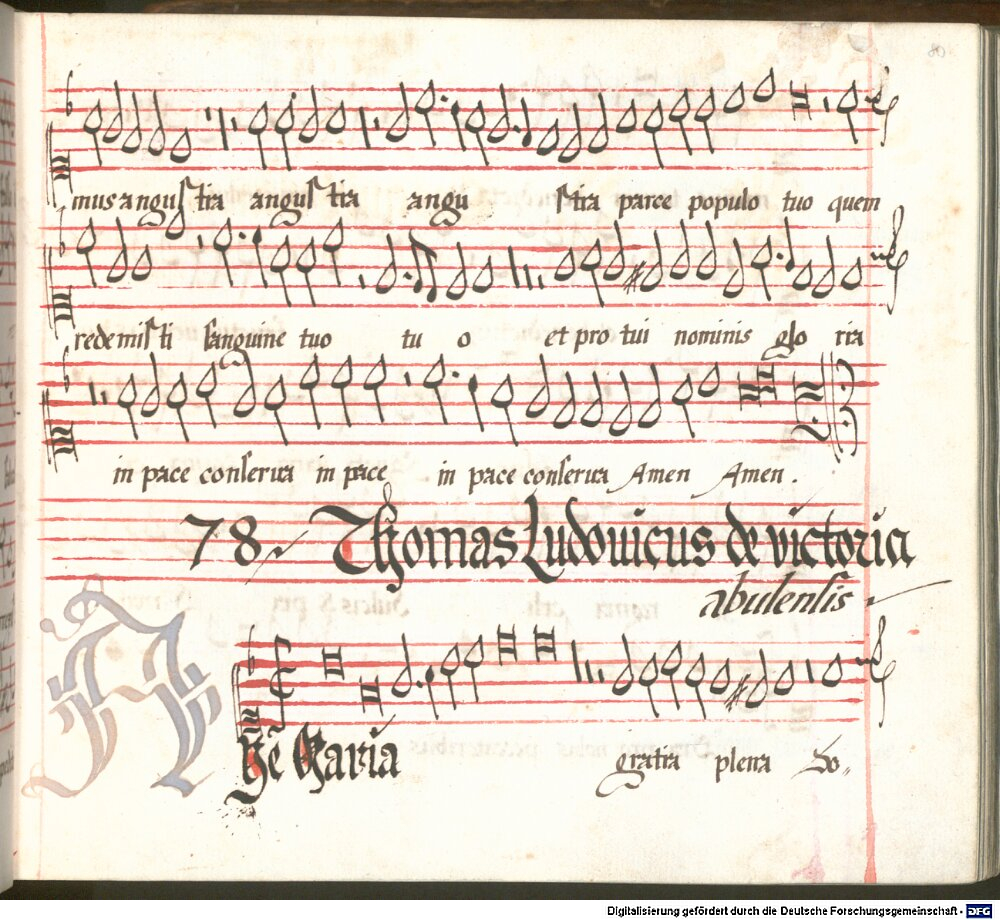 80
mus angustia angustia angu stia parce populo tuo quem
redemisti sanguine tuo tu o et pro tui nominis glo ria
in pace conserva in pace in pace conserva Amen Amen.
78 Thomas Ludovicus de victoria
abulensis.
A Ve Maria gratia plena Do„
Digitalisierung gefördert durch die Deutsche Forschungsgemeinschaft - DFG